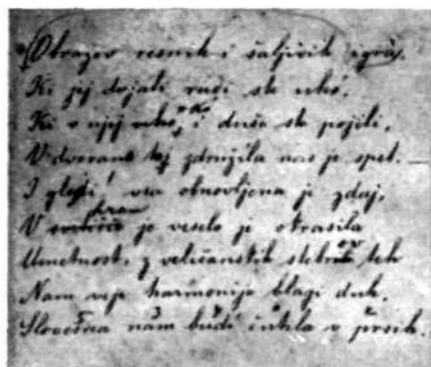 Obrazov resnih i šaljivih igráj.
Ki jej dvojati radi ste
Ki v njej uho, oko i duše ste pojili,
V dvorano tej združila nas je spet.
I glej! vsa obnovljena je zdaj,
V hram je veselo je okrasila
Umetnost, z veličanstih stebrov teh
Nam veje harmonije blagi duh.
Slovesna nam budi čutila v prsih.